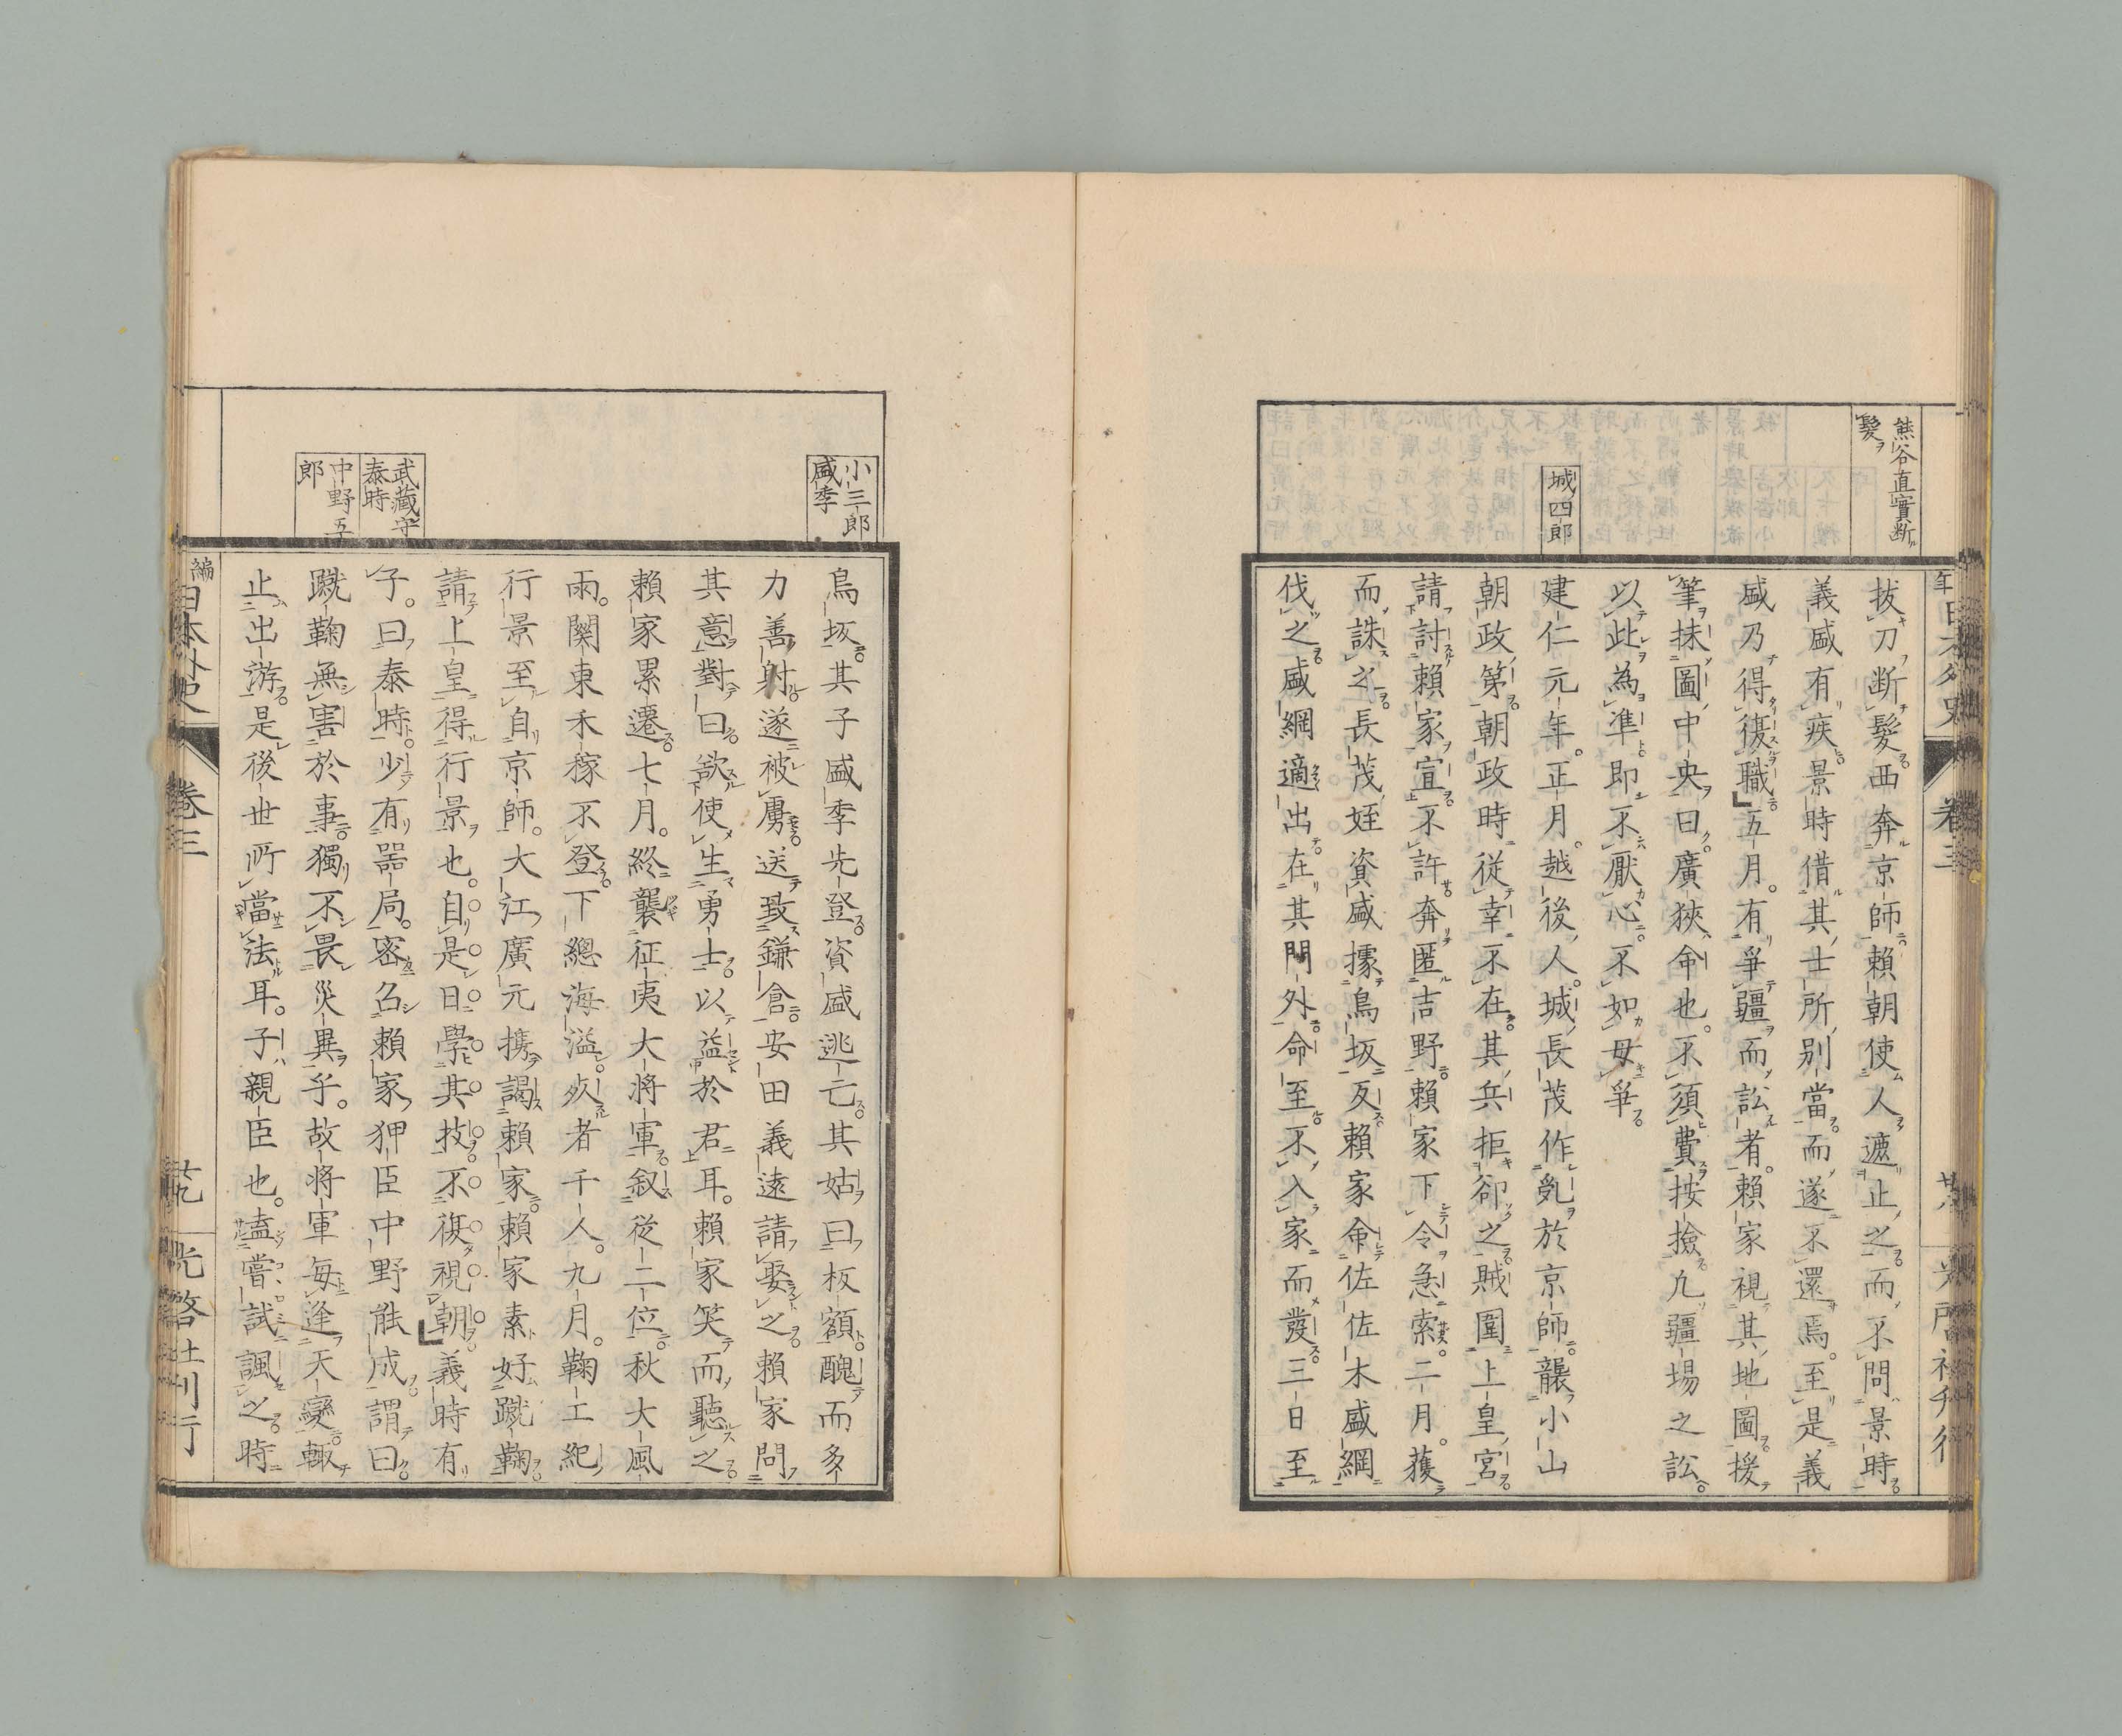 熊谷直實斷
髮ヲ
城四郎
拔刀断髮西奔京師賴朝使人遮止之而不問景時
義盛有疾景時借其士所別當而遂不還焉至是義
盛乃得復職五月有爭疆而訟者賴家視其地圖援
筆抹圖中央曰廣狹命也不須費按撿凡疆場之訟
以此為準即不厭心不如毋爭
建仁元年正月越後人城長茂作乱於京師襲小山
朝政第朝政時從幸不在其兵拒卻之賊圍上皇宮
請討賴家宣不許奔匿吉野賴家下令急索二月獲
而誅之長茂姪資盛據鳥坂反賴家命佐佐木盛綱
伐之盛綱適出在其門外命至不入家而發三日至
小三郎
盛季
武藏守
泰時
中野五
郎
鳥坂其子盛季先登資盛逃亡其姑曰板額醜而多
力善射遂被虜送致鎌倉安田義遠請娶之賴家問
其意對曰欲使生勇士以益於君耳賴家笑而聽之
賴家累遷七月終襲征夷大将軍叙從二位秋大風
雨関東禾稼不登下總海溢死者千人九月鞠工紀
行景至自京師大江廣元携謁賴家賴家素好蹴鞠
請上皇得行景也自是日學其技不復視朝義時有
子曰泰時少有器局密召賴家狎臣中野能成謂曰
蹴鞠無害於事獨不畏災異乎故将軍每逢天變輙
止出游是後世所當法耳子親臣也盍嘗試諷之時
日本外史
卷三
光啓社刊行